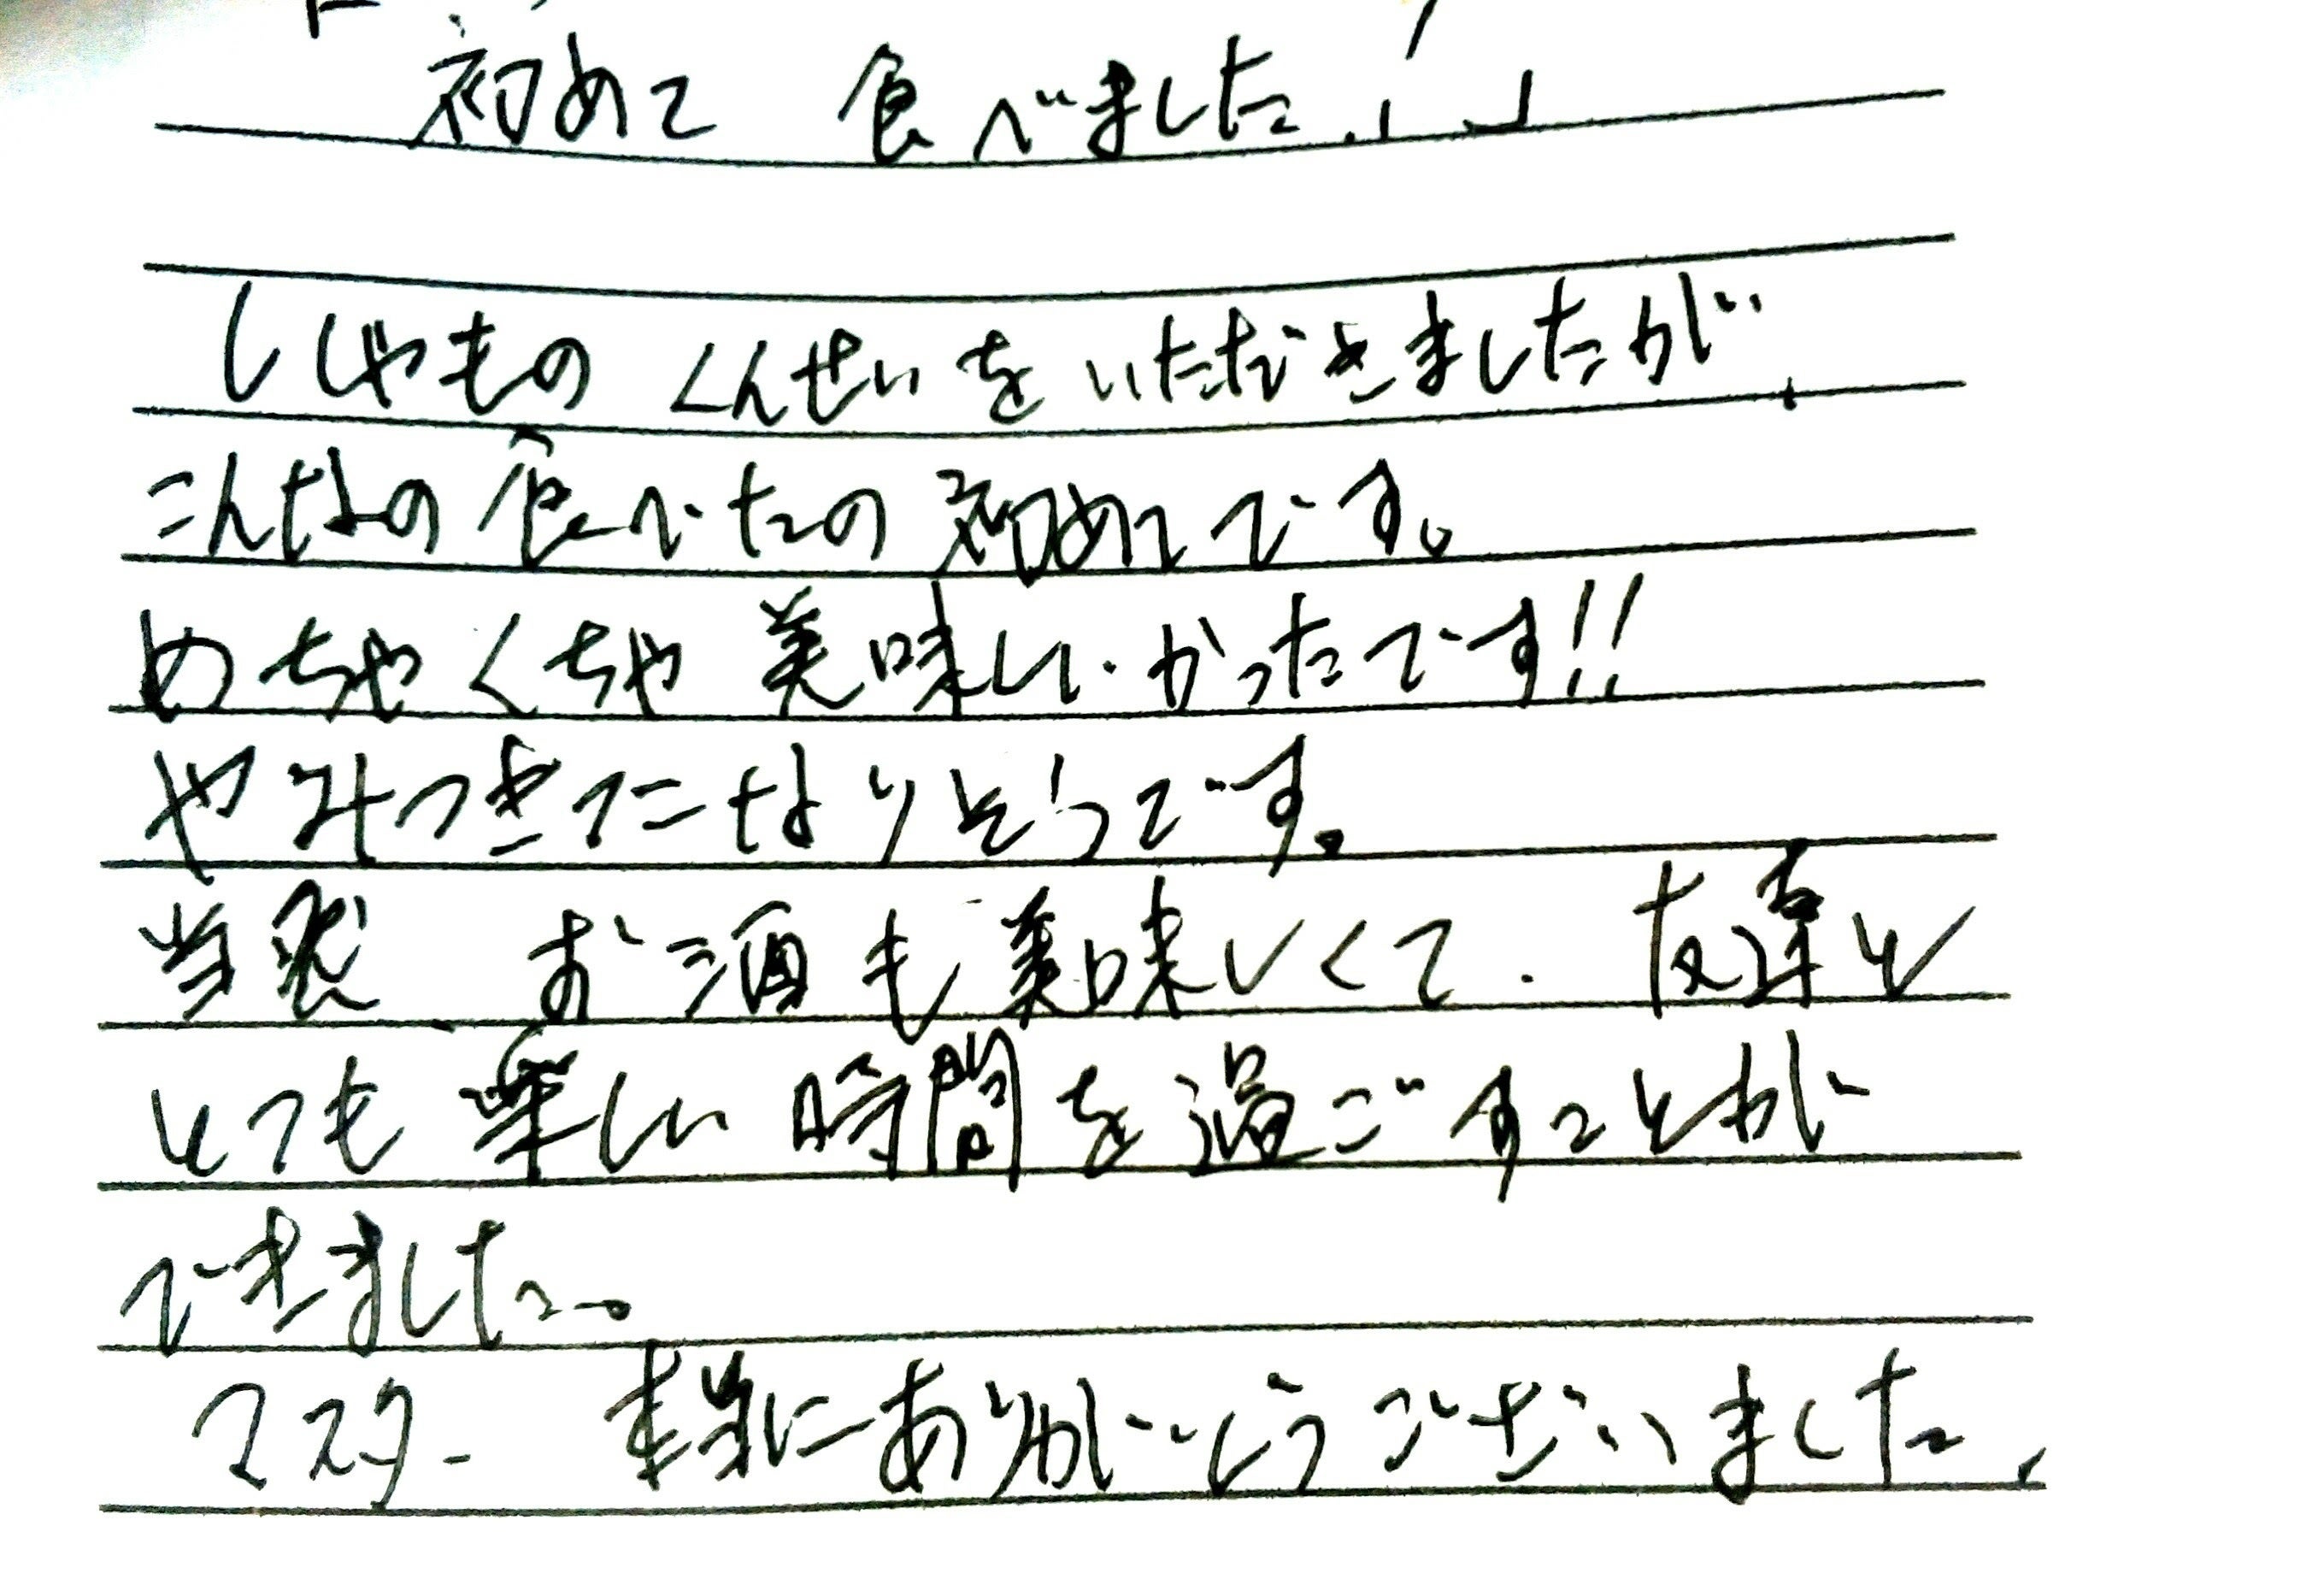 初めて 食べました!」
ししゃもの くんせいを いただきましたが、
こんなの食べたの初めてです。
めちゃくちゃ美味しいかったです!!
やみつきになりそうです。
当然、お酒も美味しくて、友達と
とても楽しい時間を過ごすことが
できました。
マスター 本当にありがとうございました。